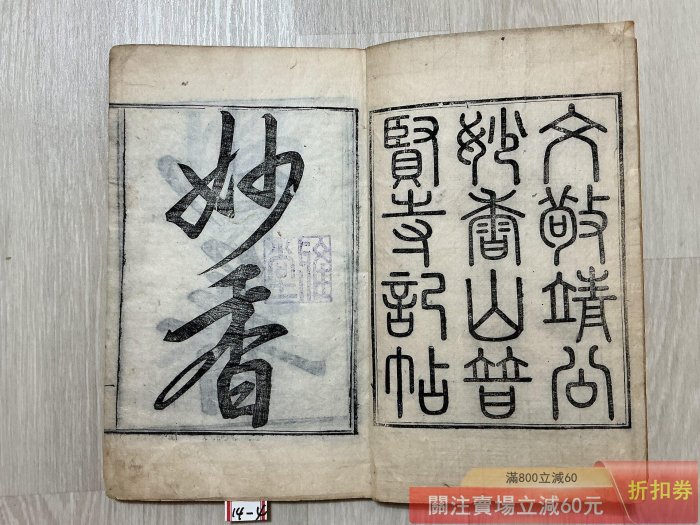 文敬靖公
妙香山普
賢寺記帖
妙香
14-4
滿800立減60
關注賣場立減60元
折扣券